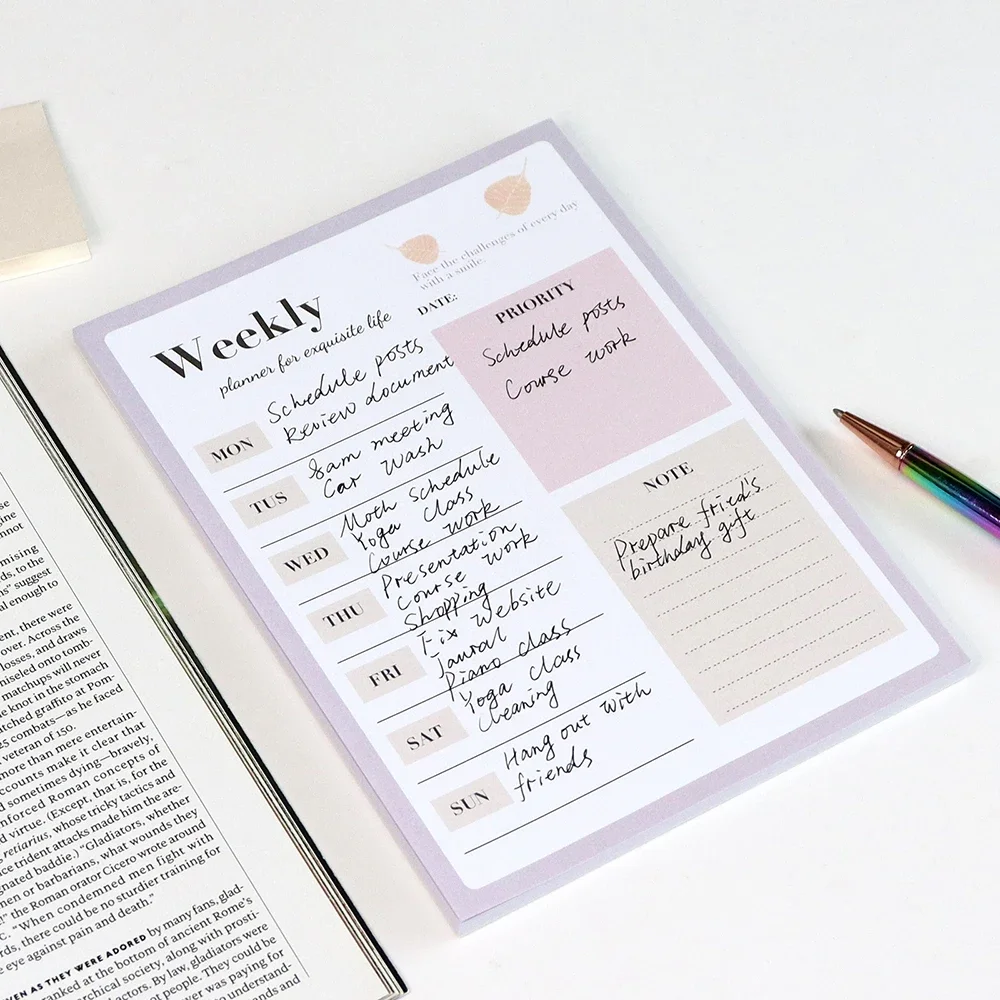 Face the challenges of every day
with a smile.
Weekly
planner for exquisite life
DATE:
MON
Schedule posts
Review document
TUS
8am meeting
Car wash
WED
Moth Schedule
Yoga class
Course work
THU
Presentation
Course work
Shopping
FRI
Fix Website
Jaural
Piano class
SAT
Yoga class
Cleaning
SUN
Hang out with
friends
PRIORITY
Schedule posts
Course work
NOTE
Prepare fried's
birthday gift
se
gine
annot
mising
ds, to the
s" suggest
al enough to
ent, there were
over. Across the
losses, and draws
niseled onto tomb
matchups will never
e knot in the stomach
tched graffito at Pom-
25 combats—as he faced
veteran of 150.
more than mere entertain-
accounts make it clear that
d sometimes dying—bravely,
nforced Roman concepts of
d virtue. (Except, that is, for the
retiarius, whose tricky tactics and
ce trident attacks made him the are-
gnated baddie.) "Gladiators, whether
men or barbarians, what wounds they
!" the Roman orator Cicero wrote around
C. "When condemned men fight with
rds, there could be no sturdier training for
e eye against pain and death."
VEN AS THEY WERE ADORED by many fans, glad-
ranked at the bottom of ancient Rome's
archical society, along with prosti-
actors. By law, gladiators were
er was paying for
tutes. They could be
o understand-
ands and